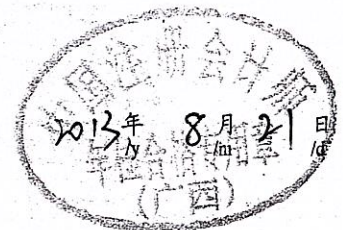 中国注册会计师
2013年 8月21日
/y /m /d
年检合格专用章
(广西)